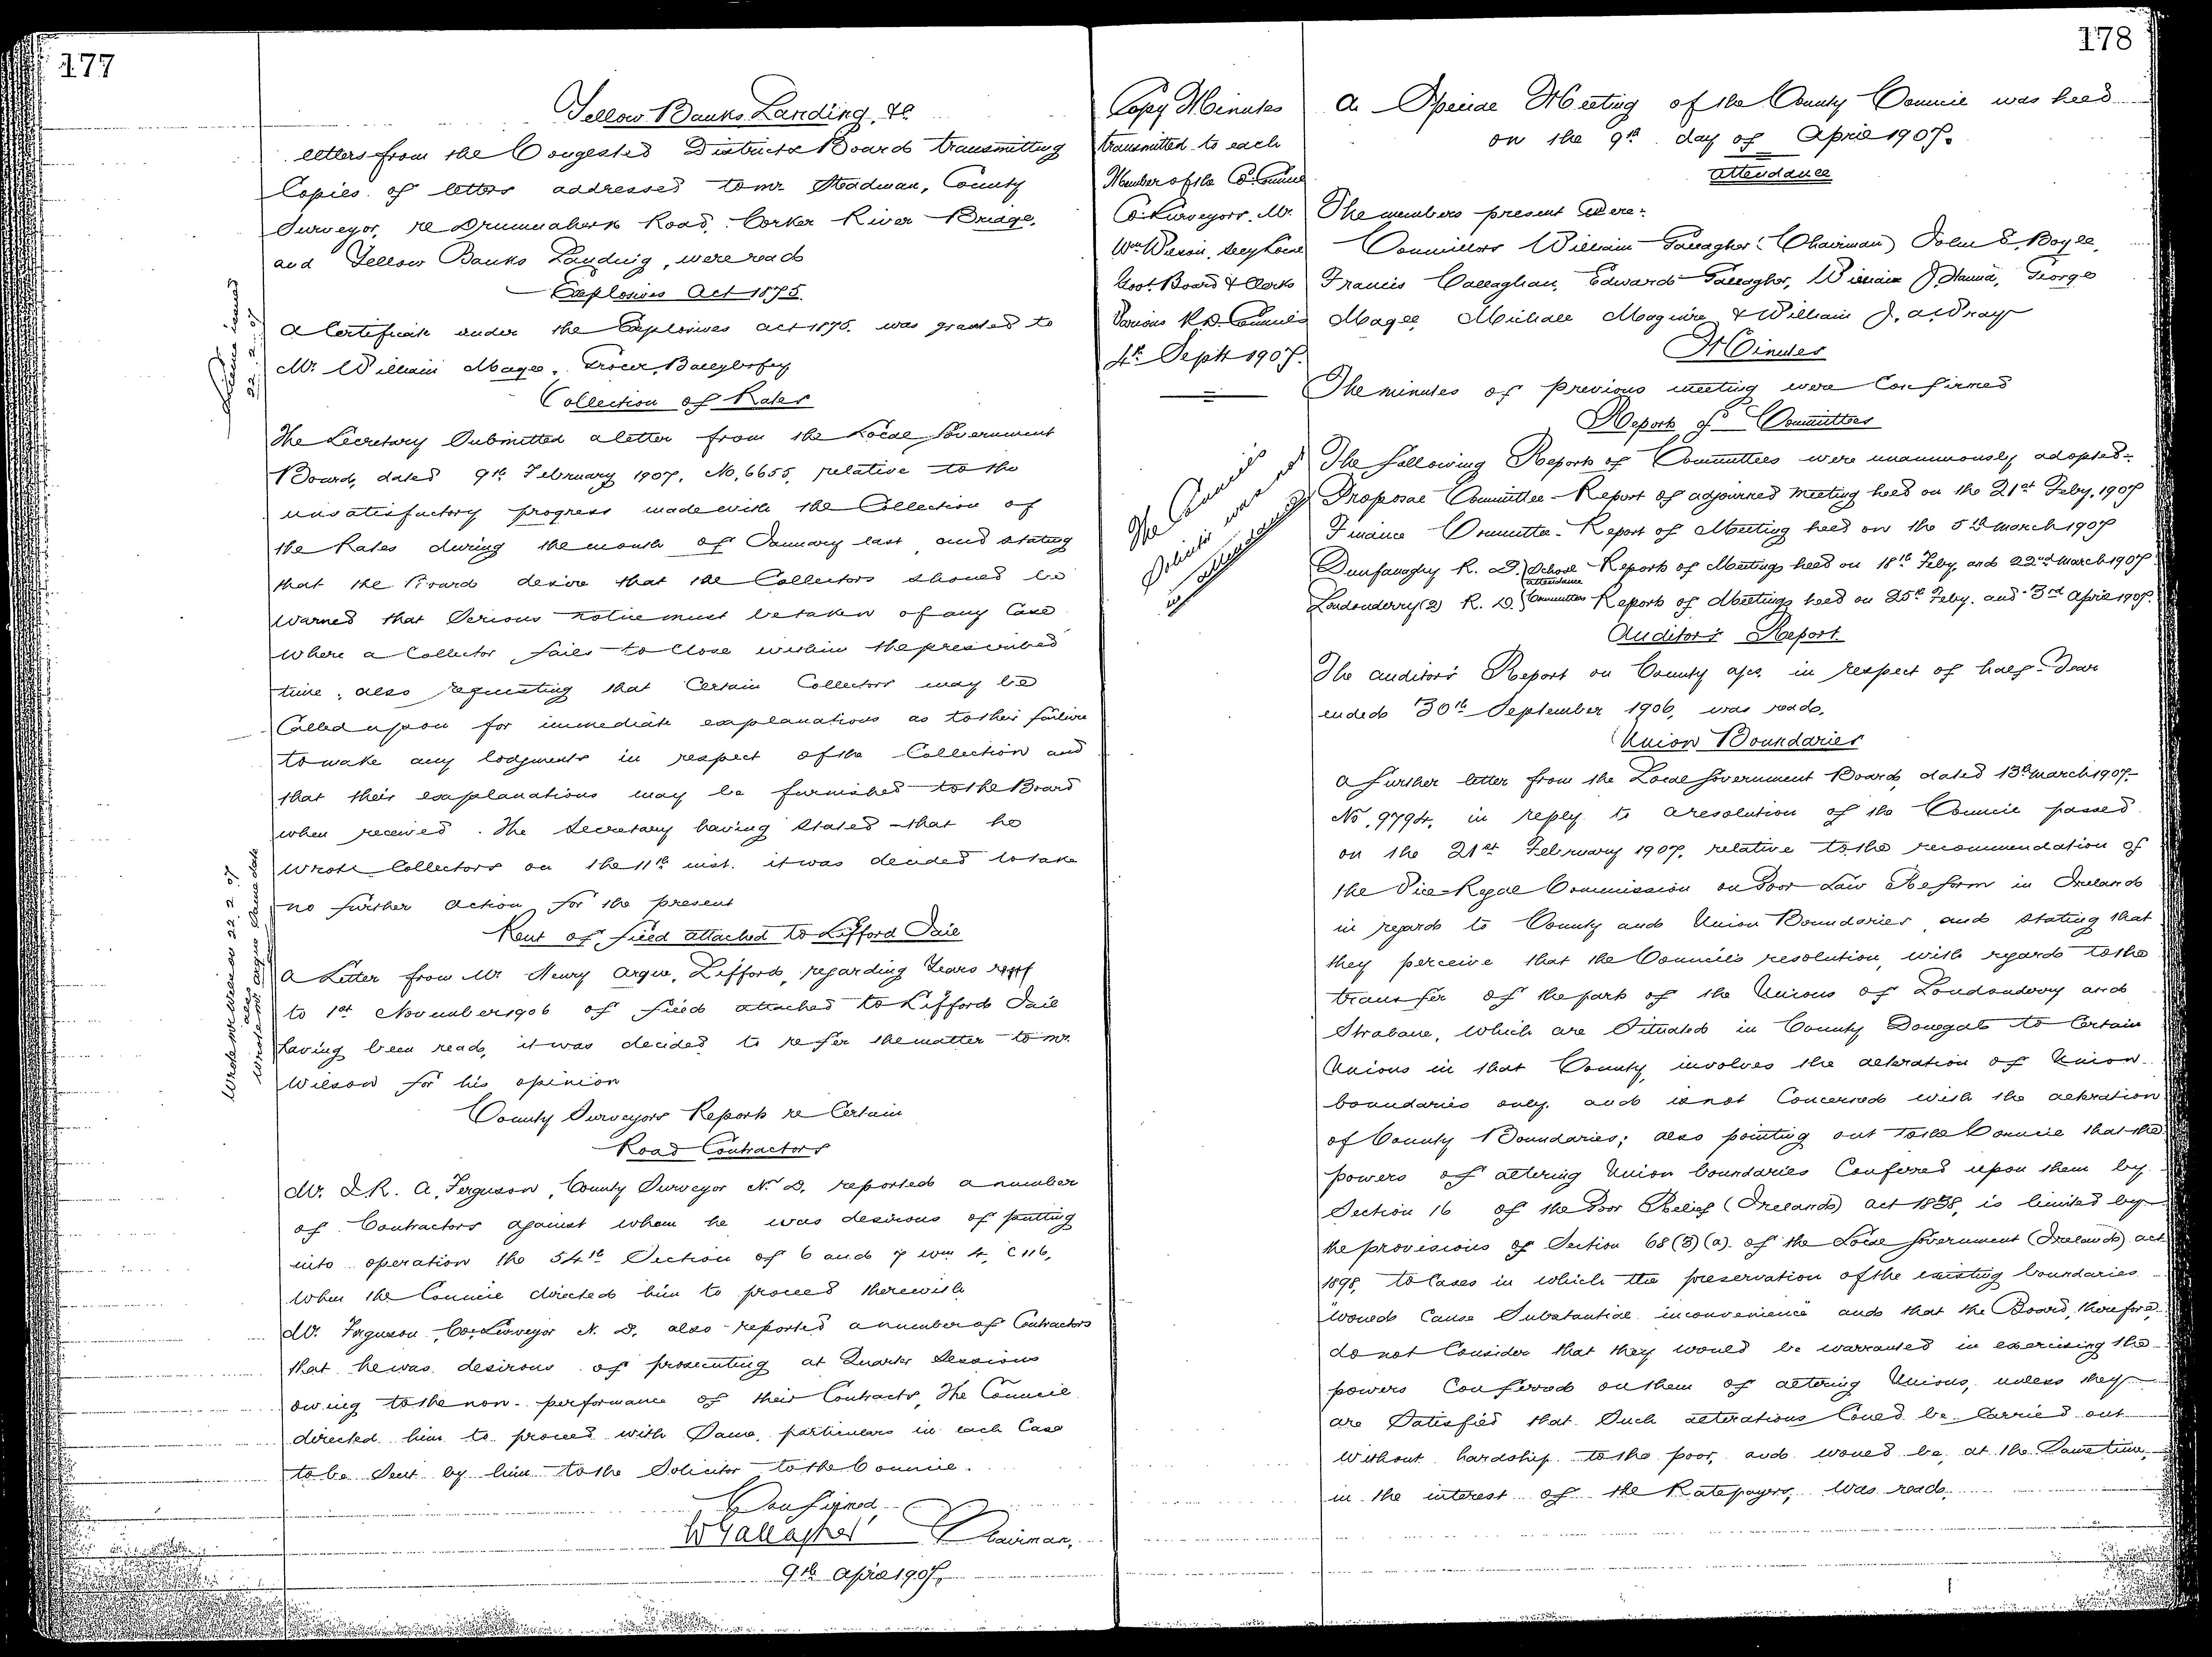 177
Yellow Banks Landing, &c
letters from the Congested Districts Board transmitting
Copies of letters addressed to Mr Steadman, County
Surveyor, re Drumnaherk Road, Corker River Bridge,
and Yellow Banks Landing, were read
Explosives Act 1875.
A Certificate under the Explosives Act 1875. was granted to
Mr. William Magee, Grocer, Ballybofey
Licence issued
22. 2. 07
Collection of Rates
The Secretary Submitted a letter from the Local Government
Board, dated 9th February 1907, No. 6655, relative to the
unsatisfactory progress made with the Collection of
the Rates during the month of January last, and stating
that the Board desire that the Collectors should be
warned that Serious notice must be taken of any Case
where a Collector fails to Close within the prescribed
time; also requesting that Certain Collectors may be
Called upon for immediate explanations as to their failure
to make any lodgments in respect of the Collection and
that their explanations may be furnished to the Board
when received. The Secretary having stated that he
wrote Collectors on the 11th inst. it was decided to take
no further action for the present
Rent of field attached to Lifford Jail
A Letter from Mr Henry Argue, Lifford, regarding Years rent
to 1st November 1906 of field attached to Lifford Jail
having been read, it was decided to refer the matter to Mr.
Wilson for his opinion
Wrote Mr Wilson 22 2. 07
also
wrote Mr Argue Same date
County Surveyors Reports re Certain
Road Contractors
Mr. J. R. A. Ferguson, County Surveyor N. D. reported a number
of Contractors against whom he was desirous of putting
into operation the 54th Section of 6 and 7 Wm 4, C 116,
when the Council directed him to proceed therewith
Mr. Ferguson, Co. Surveyor N. D. also reported a number of Contractors
that he was desirous of prosecuting at Quarter Sessions
owing to the non-performance of their Contracts, The Council
directed him to proceed with Same, particulars in each Case
to be Sent by him to the Solicitor to the Council.
Confirmed,
W Gallagher Chairman,
9th April 1907,
178
Copy Minutes
transmitted to each
Member of the Co. Council
Co. Surveyors, Mr.
Wm Wilson, Secy Local
Govt. Board & Clerks
Various R. D. Councils
4th Septr 1907.
A Special Meeting of the County Council was held
on the 9th day of April 1907.
Attendance
The members present Were:
Councillors William Gallagher (Chairman) John E. Boyle,
Francis Callaghan, Edward Gallagher, William J. Hanna, George
Magee, Michael Maguire & William J. A. Wray
Minutes
The minutes of previous meeting were Confirmed
Reports of Committees
The Council's
Solicitor was not
in attendance
The following Reports of Committees were unanimously adopted:-
Proposal Committee - Report of adjourned Meeting held on the 21st Feby. 1907
Finance Committee - Report of Meeting held on the 5th March 1907
Dunfanaghy R. D. School Reports of Meetings held on 18th Feby. and 22nd March 1907
attendance
Londonderry (2) R. D. Committees Reports of Meetings held on 25th Feby. and 3rd April 1907.
Auditor's Report.
The Auditor's Report on County a/cs. in respect of half-Year
ended 30th September 1906, was read.
Union Boundaries
A further letter from the Local Government Board, dated 13th March 1907.
No. 9794, in reply to a resolution of the Council passed
on the 21st February 1907, relative to the recommendation of
the Vice-Regal Commission on Poor Law Reform in Ireland
in regard to County and Union Boundaries, and stating that
they perceive that the Council's resolution, with regard to the
transfer of the part of the Unions of Londonderry and
Strabane, which are Situated in County Donegal to Certain
Unions in that County, involves the alteration of Union
boundaries only, and is not Concerned with the alteration
of County Boundaries; also pointing out to the Council that the
powers of altering Union boundaries Conferred upon them by
Section 16 of the Poor Relief (Ireland) Act 1838, is limited by
the provisions of Section 68 (3) (a). of the Local Government (Ireland) Act
1898, to Cases in which the preservation of the existing boundaries
"would Cause Substantial inconvenience" and that the Board, therefore,
do not Consider that they would be warranted in exercising the
powers Conferred on them of altering Unions, unless they
are Satisfied that Such alterations Could be Carried out
without hardship to the poor, and would be, at the Same time,
in the interest of the Ratepayers, was read.